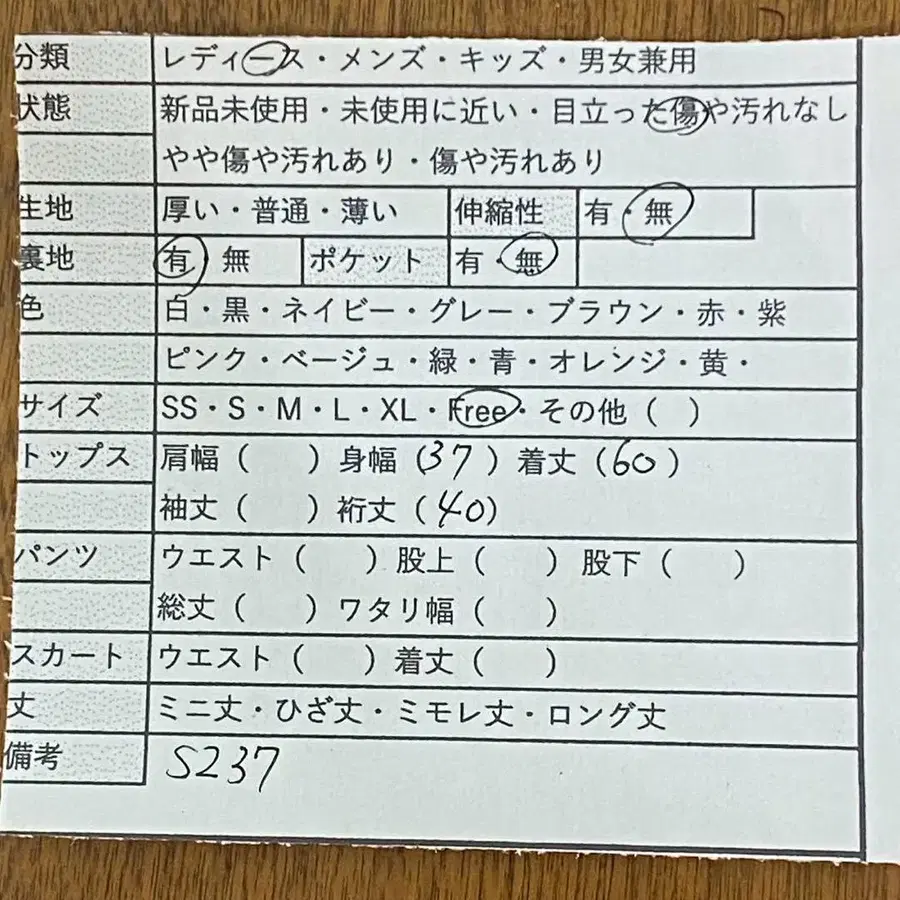 分類 レディース・メンズ・キッズ・男女兼用
状態 新品未使用・未使用に近い・目立った傷や汚れなし
やや傷や汚れあり・傷や汚れあり
生地 厚い・普通・薄い 伸縮性 有・無
裏地 有・無 ポケット 有・無
色 白・黒・ネイビー・グレー・ブラウン・赤・紫
ピンク・ベージュ・緑・青・オレンジ・黄・
サイズ SS・S・M・L・XL・Free・その他（ ）
トップス 肩幅（ ）身幅（37）着丈（60）
袖丈（ ）裄丈（40）
パンツ ウエスト（ ）股上（ ）股下（ ）
総丈（ ）ワタリ幅（ ）
スカート ウエスト（ ）着丈（ ）
丈 ミニ丈・ひざ丈・ミモレ丈・ロング丈
備考 S237